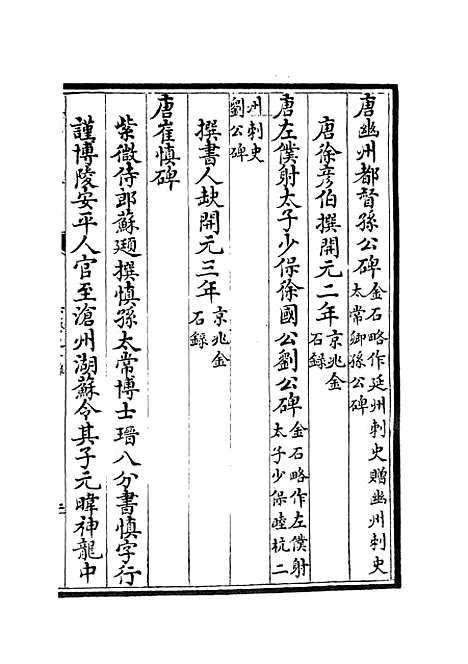 唐幽州都督孫公碑金石略作延州刺史贈幽州刺史
太常卿孫公碑
唐徐彦伯撰開元二年京兆金
石録
唐左僕射太子少保徐國公劉公碑金石略作左僕射
太子少保睦杭二
州刺史
劉公碑
撰書人缺開元三年京兆金
石録
唐崔慎碑
紫微侍郎蘇頲撰慎孫太常博士瑨八分書慎字行
謹博陵安平人官至滄州湖蘇令其子元暐神龍中